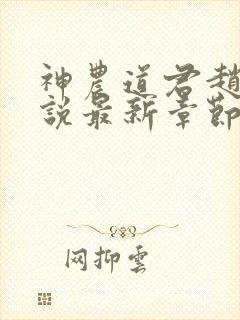 神農道君趙
說最新章節
网抑雲